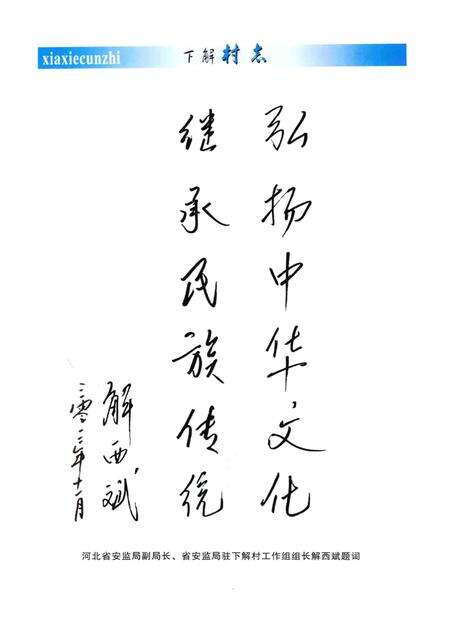 xiaxiecunzhi
下解村志
弘扬中华文化
继承民族传统
解西斌
二零一二年十一月
河北省安监局副局长、省安监局驻下解村工作组组长解西斌题词